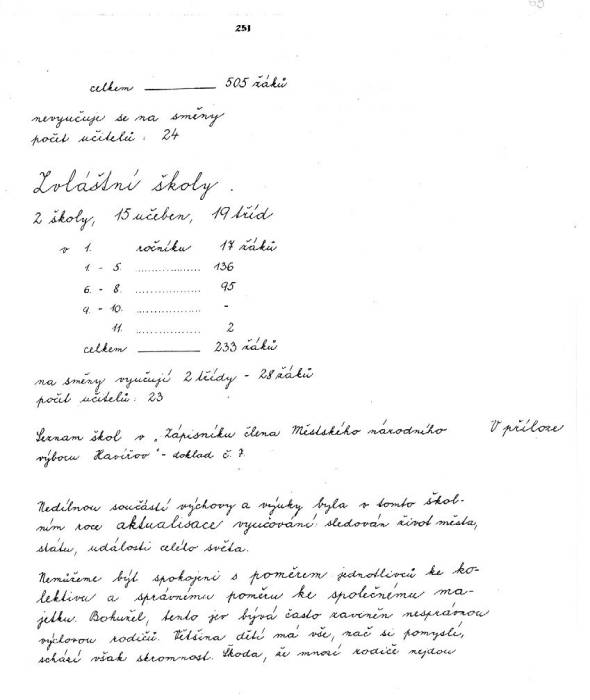 251
celkem ———— 505 žáků
nevyučuje se na směny
počet učitelů : 24
Zvláštní školy.
2 školy, 15 učeben, 19 tříd
v 1. ročníku 17 žáků
1. - 5. .................... 136
6. - 8. .................... 95
9. - 10. .................... -
11. .................... 2
celkem ———— 233 žáků
na směny vyučují 2 třídy - 28 žáků
počet učitelů : 23
Seznam škol v „Zápisníku člena Městského národního V příloze
výboru Havířov" - doklad č. 7.
Nedílnou součástí výchovy a výuky byla v tomto škol-
ním roce aktualisace vyučování: sledován život města,
státu, události celého světa.
Nemůžeme být spokojeni s poměrem jednotlivců ke ko-
lektivu a správnému poměru ke společnému ma-
jetku. Bohužel, tento jev bývá často zaviněn nesprávnou
výchovou rodičů. Většina dětí má vše, nač si pomyslí,
schází však skromnost. Škoda, že mnozí rodiče nejdou